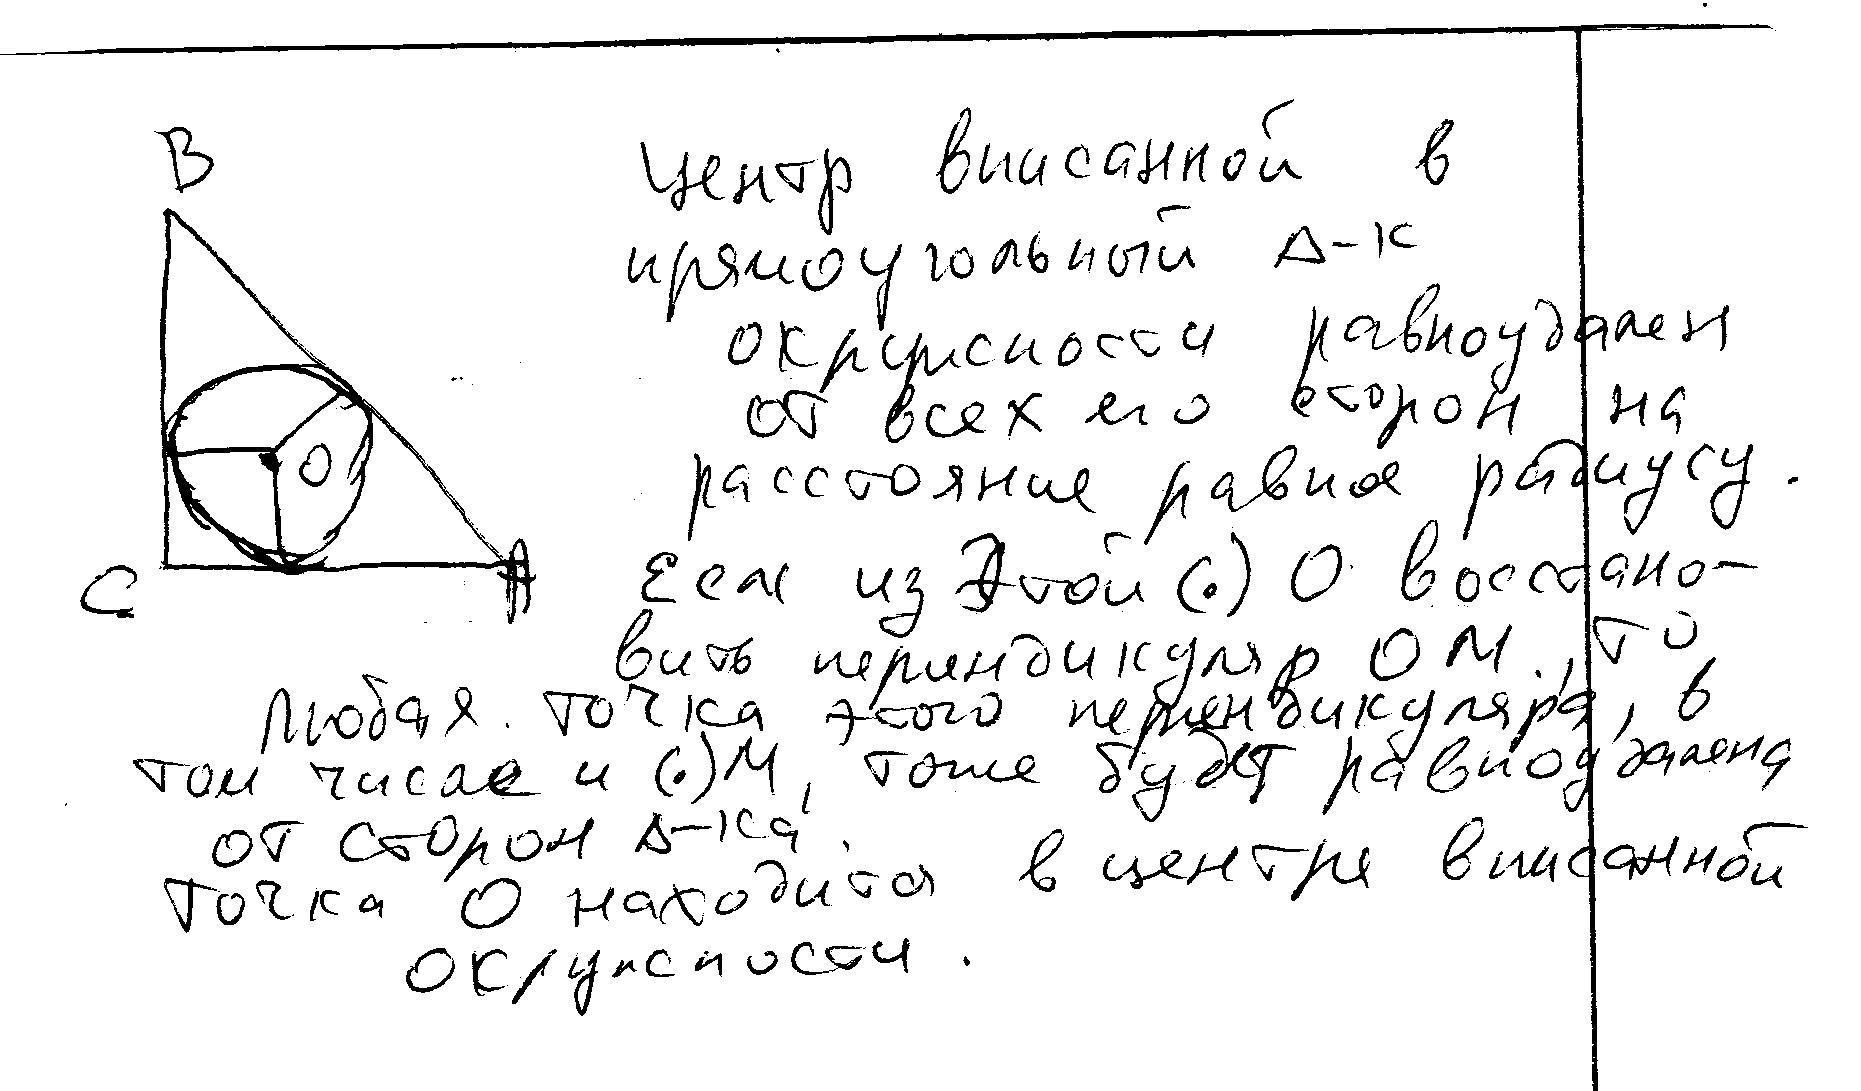 B
Центр вписанной в
прямоугольный Δ-к
окружности равноудален
от всех его сторон на
O
расстояние равное радиусу.
C
A
Если из этой (.) О восстано-
вить перпендикуляр ОМ, то
любая точка этого перпендикуляра, в
том числе и (.) М, тоже будет равноудалена
от сторон Δ-ка.
Точка О находится в центре вписанной
окружности.